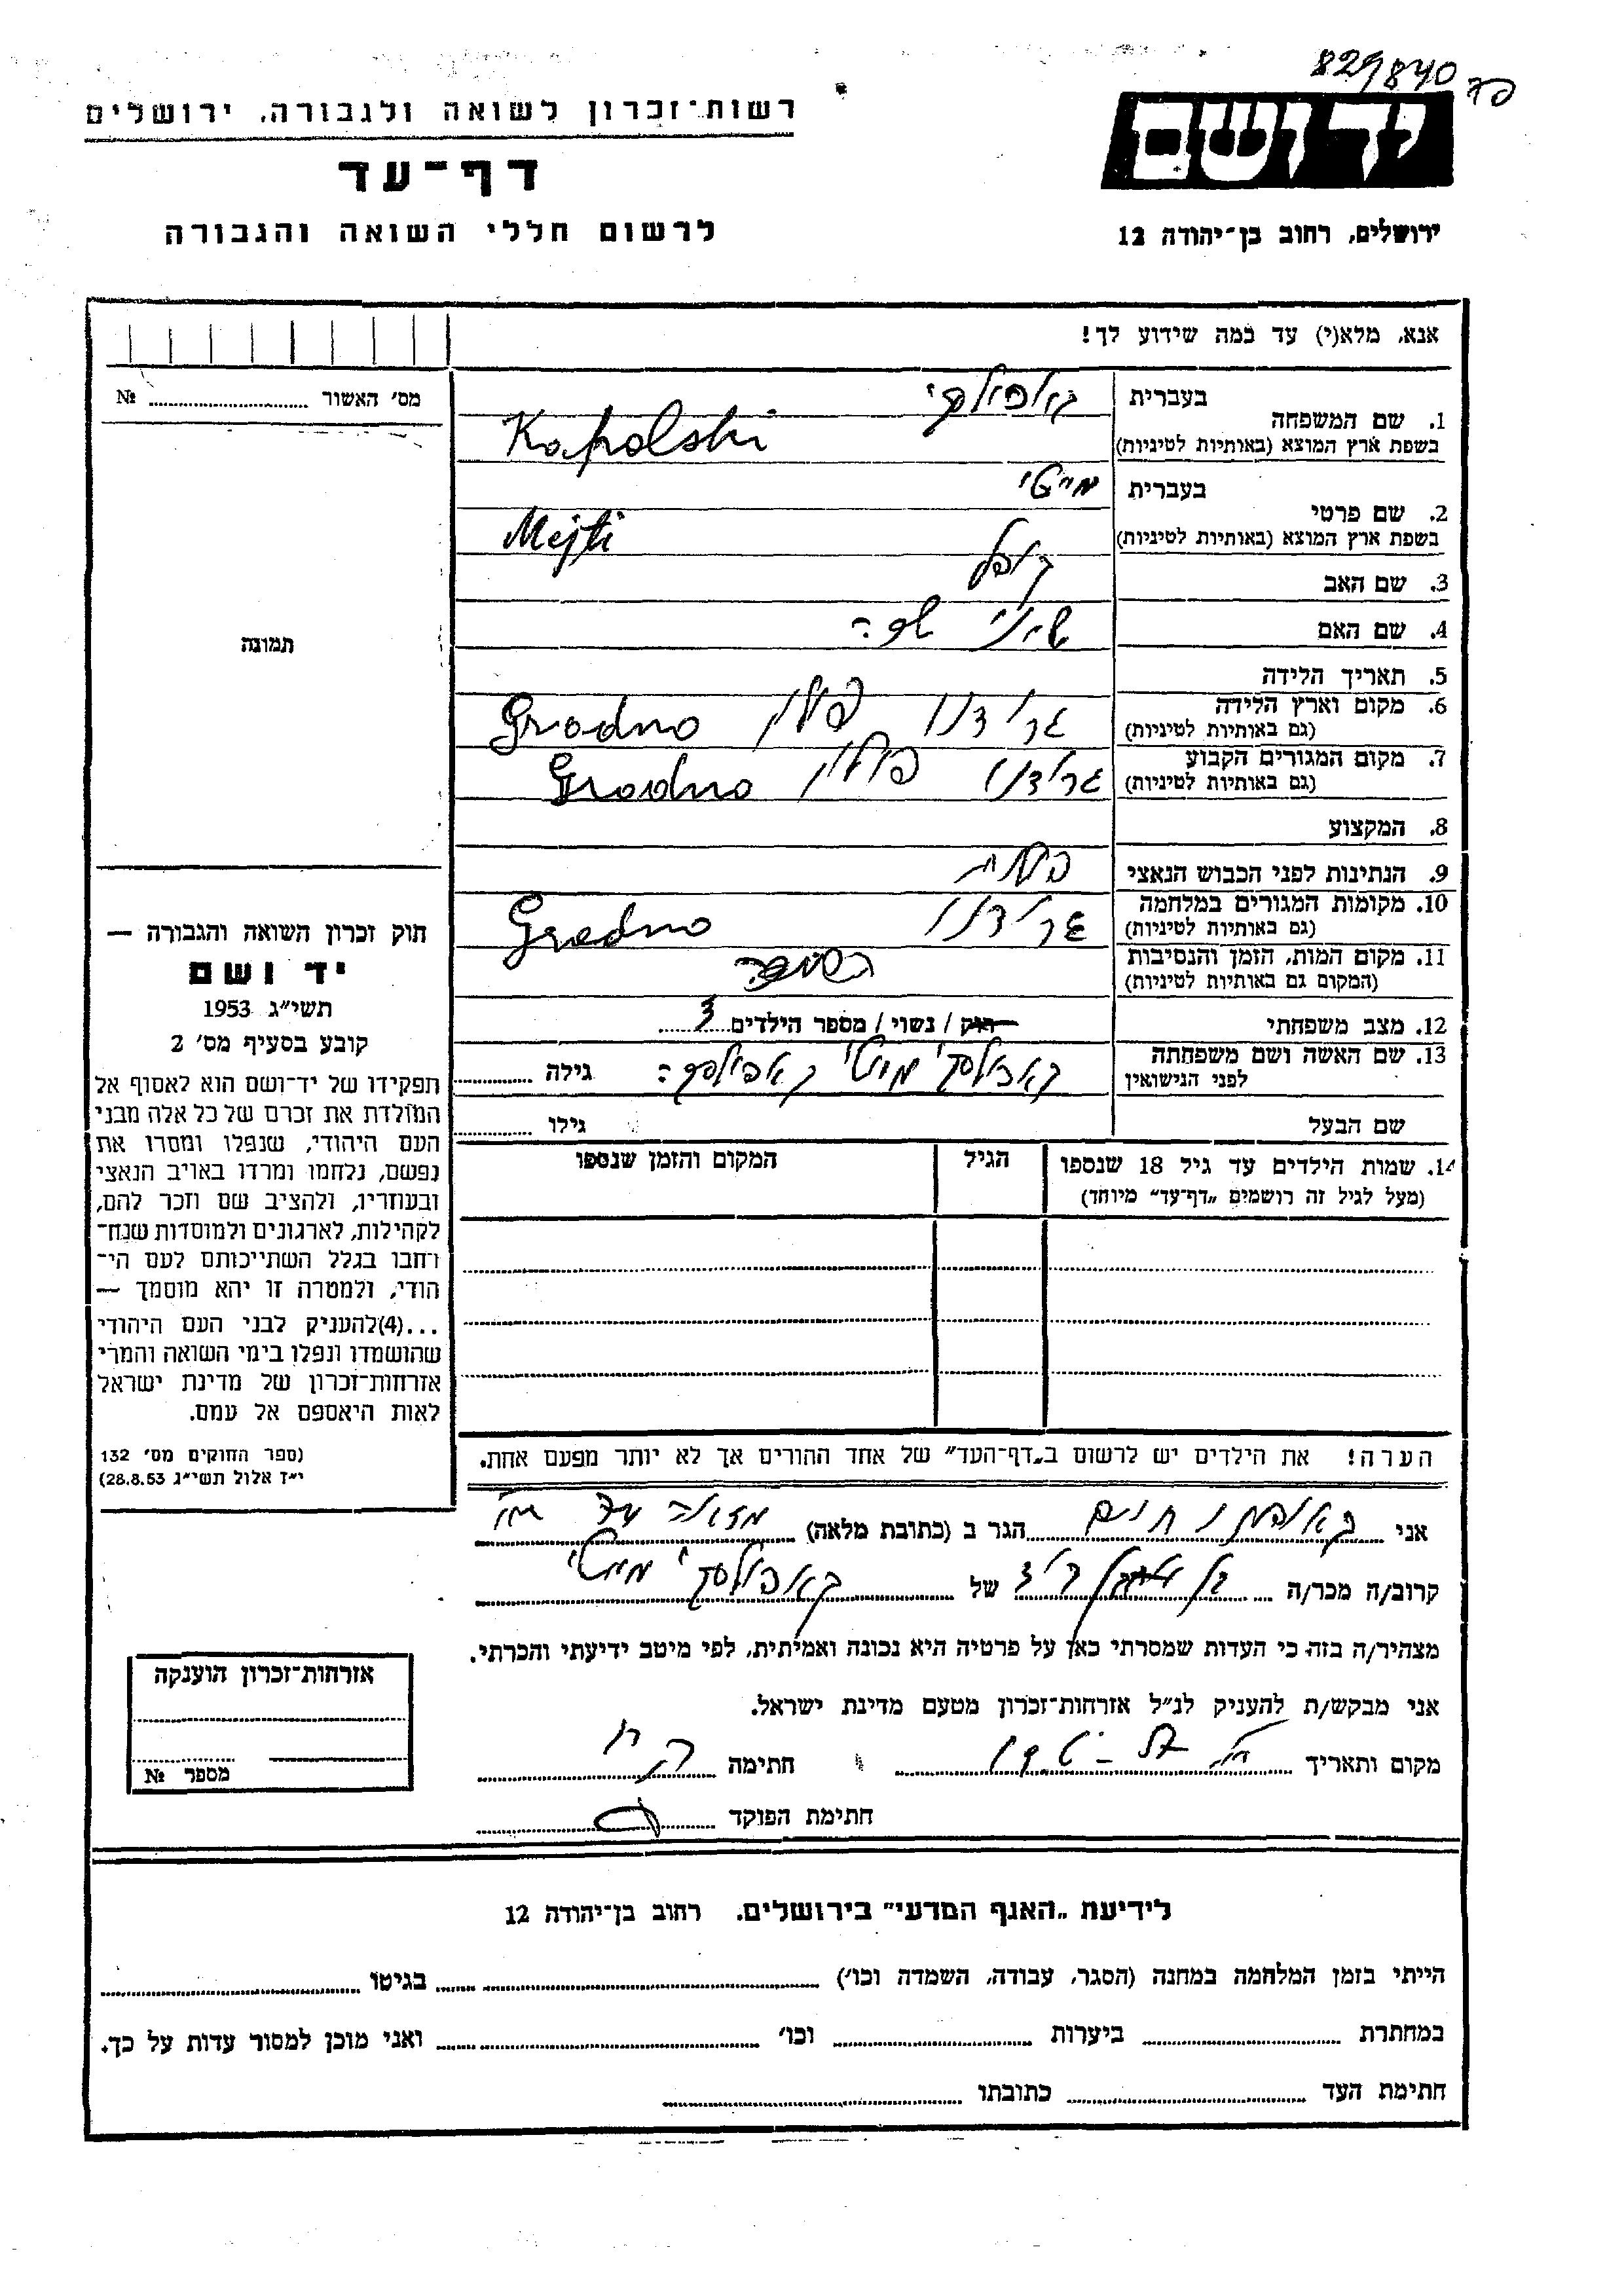 829840
רשות־זכרון לשואה ולגבורה, ירושלים
יד ושם
דף־עד
ירושלים, רחוב בן־יהודה 12
לרשום חללי השואה והגבורה
אנא, מלא(י) עד כמה שידוע לך!
מס׳ האשור №
בעברית
1. שם המשפחה
בשפת ארץ המוצא (באותיות לטיניות) Kapolski
בעברית מייטי
2. שם פרטי
בשפת ארץ המוצא (באותיות לטיניות) Mejti
3. שם האב
4. שם האם
תמונה
5. תאריך הלידה
6. מקום וארץ הלידה גרודנו פולין Grodno
(גם באותיות לטיניות)
7. מקום המגורים הקבוע גרודנו פולין Grodno
(גם באותיות לטיניות)
8. המקצוע
9. הנתינות לפני הכבוש הנאצי פולנית
10. מקומות המגורים במלחמה גרודנו Grodno
(גם באותיות לטיניות)
11. מקום המות, הזמן והנסיבות בשואה
(המקום גם באותיות לטיניות)
12. מצב משפחתי רווק / נשוי / מספר הילדים 3
13. שם האשה ושם משפחתה
לפני הנישואין גילה
שם הבעל גילו
14. שמות הילדים עד גיל 18 שנספו הגיל המקום והזמן שנספו
(מעל לגיל זה רושמים „דף־עד״ מיוחד)
הערה! את הילדים יש לרשום ב„דף־העד״ של אחד ההורים אך לא יותר מפעם אחת.
חוק זכרון השואה והגבורה —
יד ושם
תשי״ג 1953
קובע בסעיף מס׳ 2
תפקידו של יד־ושם הוא לאסוף אל
המולדת את זכרם של כל אלה מבני
העם היהודי, שנפלו ומסרו את
נפשם, נלחמו ומרדו באויב הנאצי
ובעוזריו, ולהציב שם וזכר להם,
לקהילות, לארגונים ולמוסדות שנח־
רבו בגלל השתייכותם לעם הי־
הודי, ולמטרה זו יהא מוסמך —
...(4)להעניק לבני העם היהודי
שהושמדו ונפלו בימי השואה והמרי
אזרחות־זכרון של מדינת ישראל
לאות היאספם אל עמם.
(ספר החוקים מס׳ 132
י״ז אלול תשי״ג 28.8.53)
אני חיים הגר ב (כתובת מלאה)
קרוב/ה מכר/ה בן דוד של קאפולסקי מייטי
מצהיר/ה בזה כי העדות שמסרתי כאן על פרטיה היא נכונה ואמיתית, לפי מיטב ידיעתי והכרתי.
אני מבקש/ת להעניק לנ״ל אזרחות־זכרון מטעם מדינת ישראל.
מקום ותאריך חתימה
חתימת הפוקד
אזרחות־זכרון הוענקה
מספר №
לידיעת „האגף המדעי״ בירושלים, רחוב בן־יהודה 12
הייתי בזמן המלחמה במחנה (הסגר, עבודה, השמדה וכו׳) בגיטו
במחתרת ביערות וכו׳ ואני מוכן למסור עדות על כך.
חתימת העד כתובתו